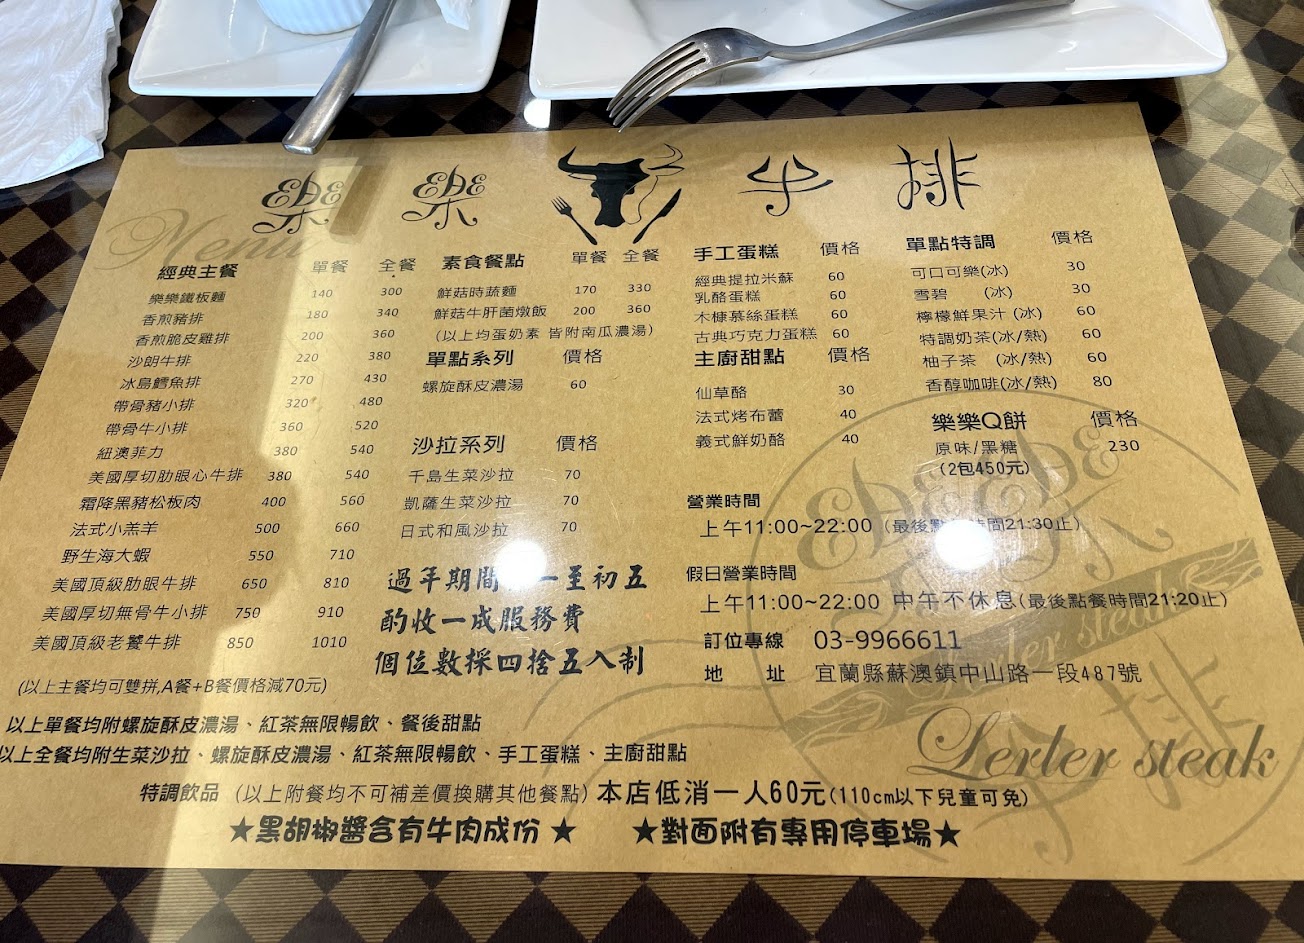 樂樂牛排
Menu
經典主餐 單餐 全餐
樂樂鐵板麵 140 300
香煎豬排 180 340
香煎脆皮雞排 200 360
沙朗牛排 220 380
冰島鱈魚排 270 430
帶骨豬小排 320 480
帶骨牛小排 360 520
紐澳菲力 380 540
美國厚切肋眼心牛排 380 540
霜降黑豬松板肉 400 560
法式小羔羊 500 660
野生海大蝦 550 710
美國頂級肋眼牛排 650 810
美國厚切無骨牛小排 750 910
美國頂級老饕牛排 850 1010
(以上主餐均可雙拼,A餐+B餐價格減70元)
素食餐點 單餐 全餐
鮮菇時蔬麵 170 330
鮮菇牛肝菌燉飯 200 360
(以上均蛋奶素 皆附南瓜濃湯)
單點系列 價格
螺旋酥皮濃湯 60
沙拉系列 價格
千島生菜沙拉 70
凱薩生菜沙拉 70
日式和風沙拉 70
過年期間 一至初五
酌收一成服務費
個位數採四捨五入制
手工蛋糕 價格
經典提拉米蘇 60
乳酪蛋糕 60
木槺慕絲蛋糕 60
古典巧克力蛋糕 60
主廚甜點 價格
仙草酪 30
法式烤布蕾 40
義式鮮奶酪 40
單點特調 價格
可口可樂(冰) 30
雪碧 (冰) 30
檸檬鮮果汁 (冰) 60
特調奶茶(冰/熱) 60
柚子茶 (冰/熱) 60
香醇咖啡(冰/熱) 80
樂樂Q餅 價格
原味/黑糖 230
(2包450元)
營業時間
上午11:00~22:00 (最後點 時間21:30止)
假日營業時間
上午11:00~22:00 中午不休息(最後點餐時間21:20止)
訂位專線 03-9966611
地 址 宜蘭縣蘇澳鎮中山路一段487號
以上單餐均附螺旋酥皮濃湯、紅茶無限暢飲、餐後甜點
以上全餐均附生菜沙拉、螺旋酥皮濃湯、紅茶無限暢飲、手工蛋糕、主廚甜點
特調飲品 (以上附餐均不可補差價換購其他餐點) 本店低消一人60元(110cm以下兒童可免)
★黑胡椒醬含有牛肉成份★ ★對面附有專用停車場★
樂樂
Lerler steak
牛排
Lerler steak